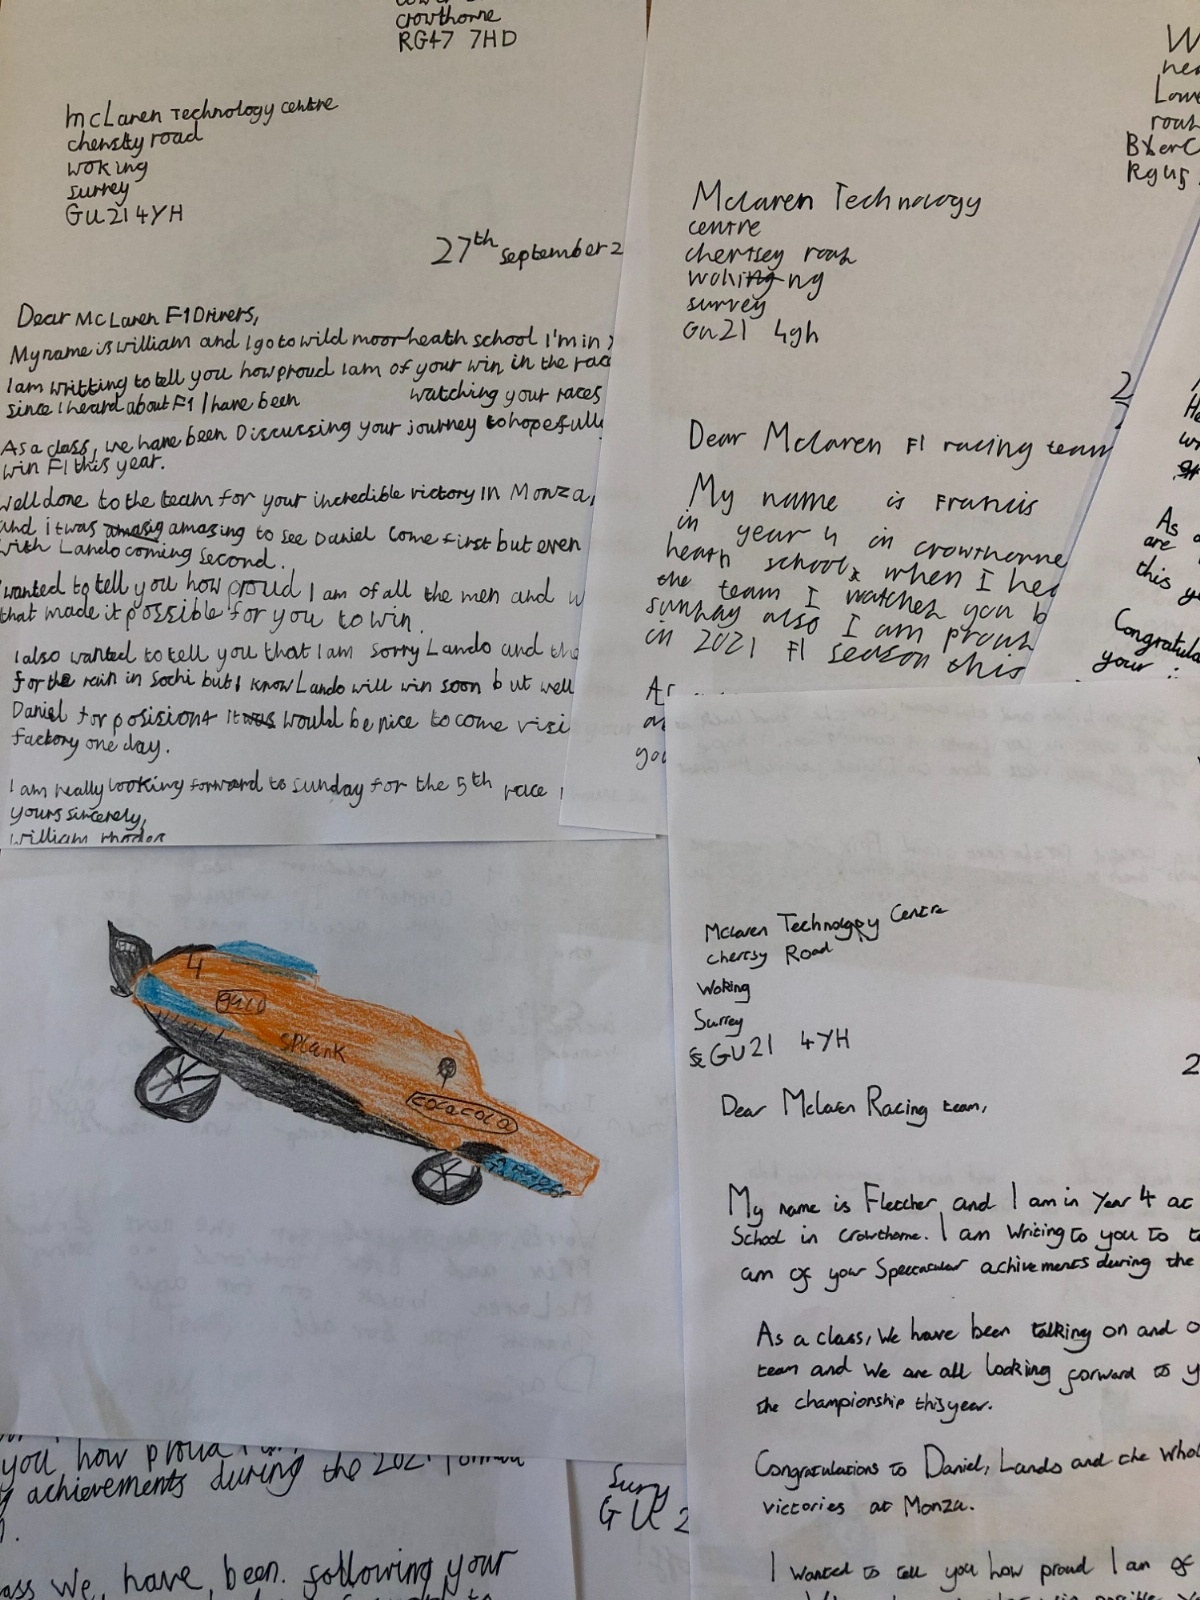 crowthorne
RG47 7HD
mcLaren Technology centre
chensty road
woking
surrey
GU21 4YH
27th september 2
Dear McLaren F1 Drivers,
My name is william and I go to wild moor heath school I'm in
I am writting to tell you how proud I am of your win in the rac
since I heard about F1 I have been watching your races
As a class, we have been Discussing your journey to hopefully
win F1 this year.
well done to the team for your incredible victory in Monza,
and it was amasig amazing to see Daniel come first but even
with Lando coming second.
I wanted to tell you how proud I am of all the men and w
that made it possible for you to win.
I also wanted to tell you that I am sorry Lando and the
for the rain in Sochi but I know Lando will win soon but well
Daniel for posision 4 it was would be nice to come visi
factory one day.
I am really looking forward to sunday for the 5th race
yours sincerely,
william rhodes
W
hea
Lowe
roah
Rgu5
McLaren Technology
centre
chertsey roah
woking ng
survey
Gu21 4gh
2
Dear McLaren F1 racing team
My name is Francis
in year 4 in crowthorne
heath school, when I hea
the team I watched you b
sunday also I am prouh
in 2021 F1 season this
you
As a
are
this ye
Congratula
your
4
Splank
coca cola
McLaren Technology Centre
chertsy Road
Woking
Surrey
GU21 4YH
2
Dear McLaren Racing team,
My name is Fletcher and I am in Year 4 at
School in Crowthorne. I am Writing to you to te
am of your Speccacular achivements during the
As a class, We have been talking on and o
team and We are all looking forward to y
the championship this year.
Congratulations to Daniel, Lando and the Whol
victories at Monza.
I wanted to tell you how proud I am of
you how proud I
achievements during the 2021
ass We have been. following your
Surry
GU 2